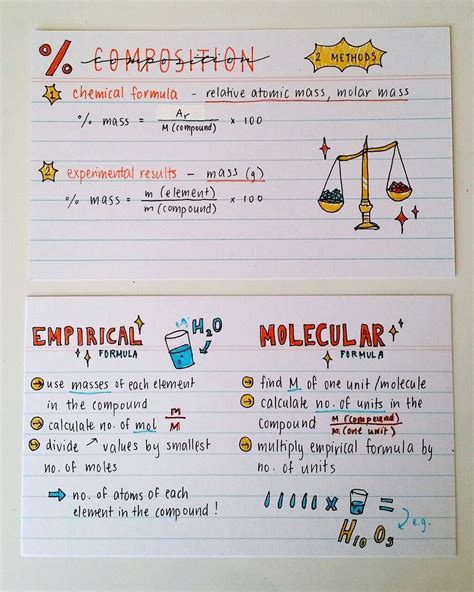 % COMPOSITION
composition
2 METHODS
1 chemical formula - relative atomic mass, molar mass
% mass = Ar / M (compound) × 100
2 experimental results - mass (g)
% mass = m (element) / m (compound) × 100
EMPIRICAL
FORMULA
e.g. H2O
use masses of each element
in the compound
calculate no. of mol m/M
divide ↗ values by smallest
no. of moles
→ no. of atoms of each
element in the compound !
MOLECULAR
FORMULA
find M of one unit/molecule
calculate no. of units in the
compound M (compound) / M (one unit)
multiply empirical formula by
no. of units
x =
e.g.
H10 O5